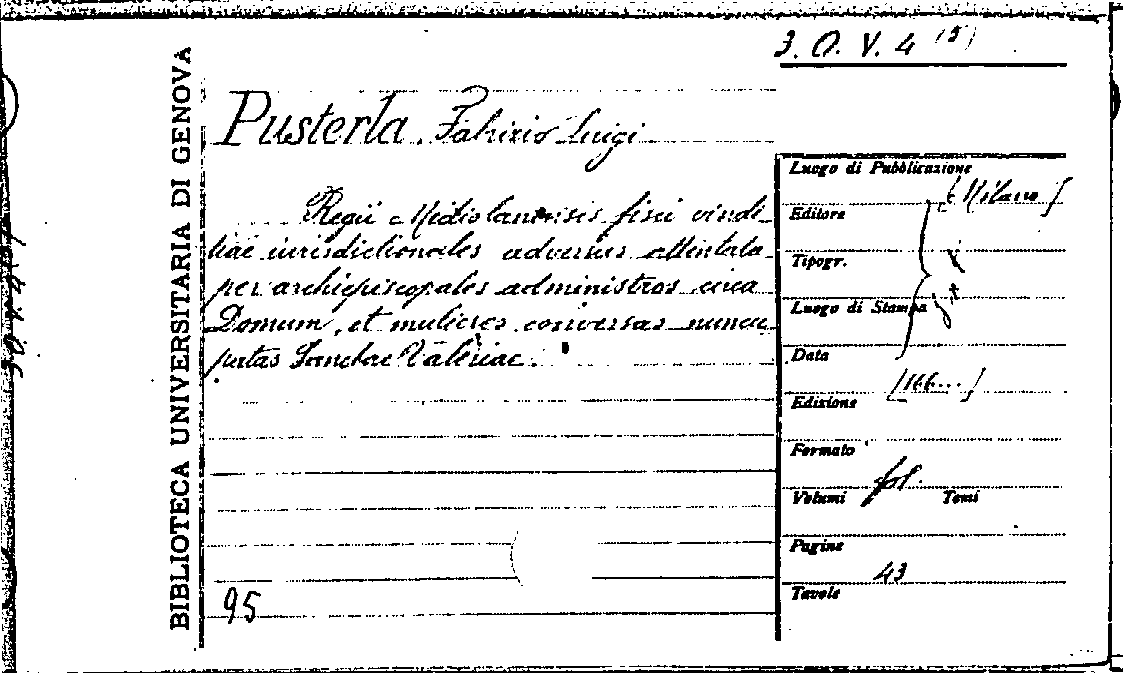 3. O. V. 4 (5)
BIBLIOTECA UNIVERSITARIA DI GENOVA
Pusterla, Fabrizio Luigi
Regii Mediolanensis fisci vindi-
tiae iurisdictionales adversus attentata
per archiepiscopales administros circa
Domum, et mulieres conversas nuncu
patas Sanctae Valeriae.
95
Luogo di Pubblicazione
[Milano]
Editore
Tipogr.
Luogo di Stampa
Data
[166...]
Edizione
Formato
fol.
Volumi Tomi
Pagine
43
Tavole